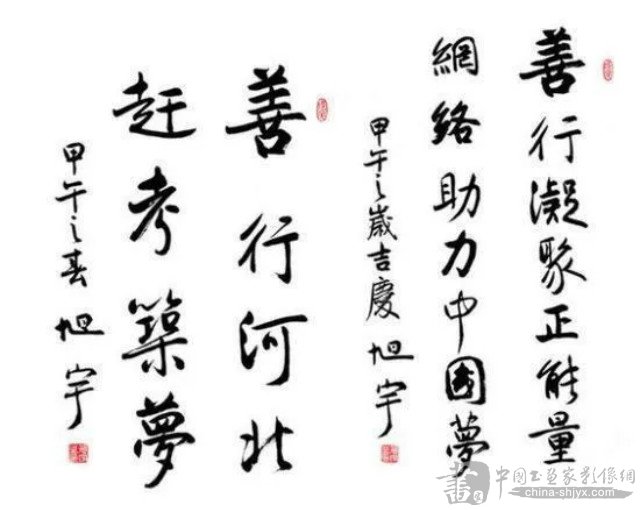 善行凝聚正能量
網絡助力中國夢
甲午之歲吉慶 旭宇
善行河北
赶考築夢
甲午之春 旭宇
中国书画家影像網
china-shjyx.com